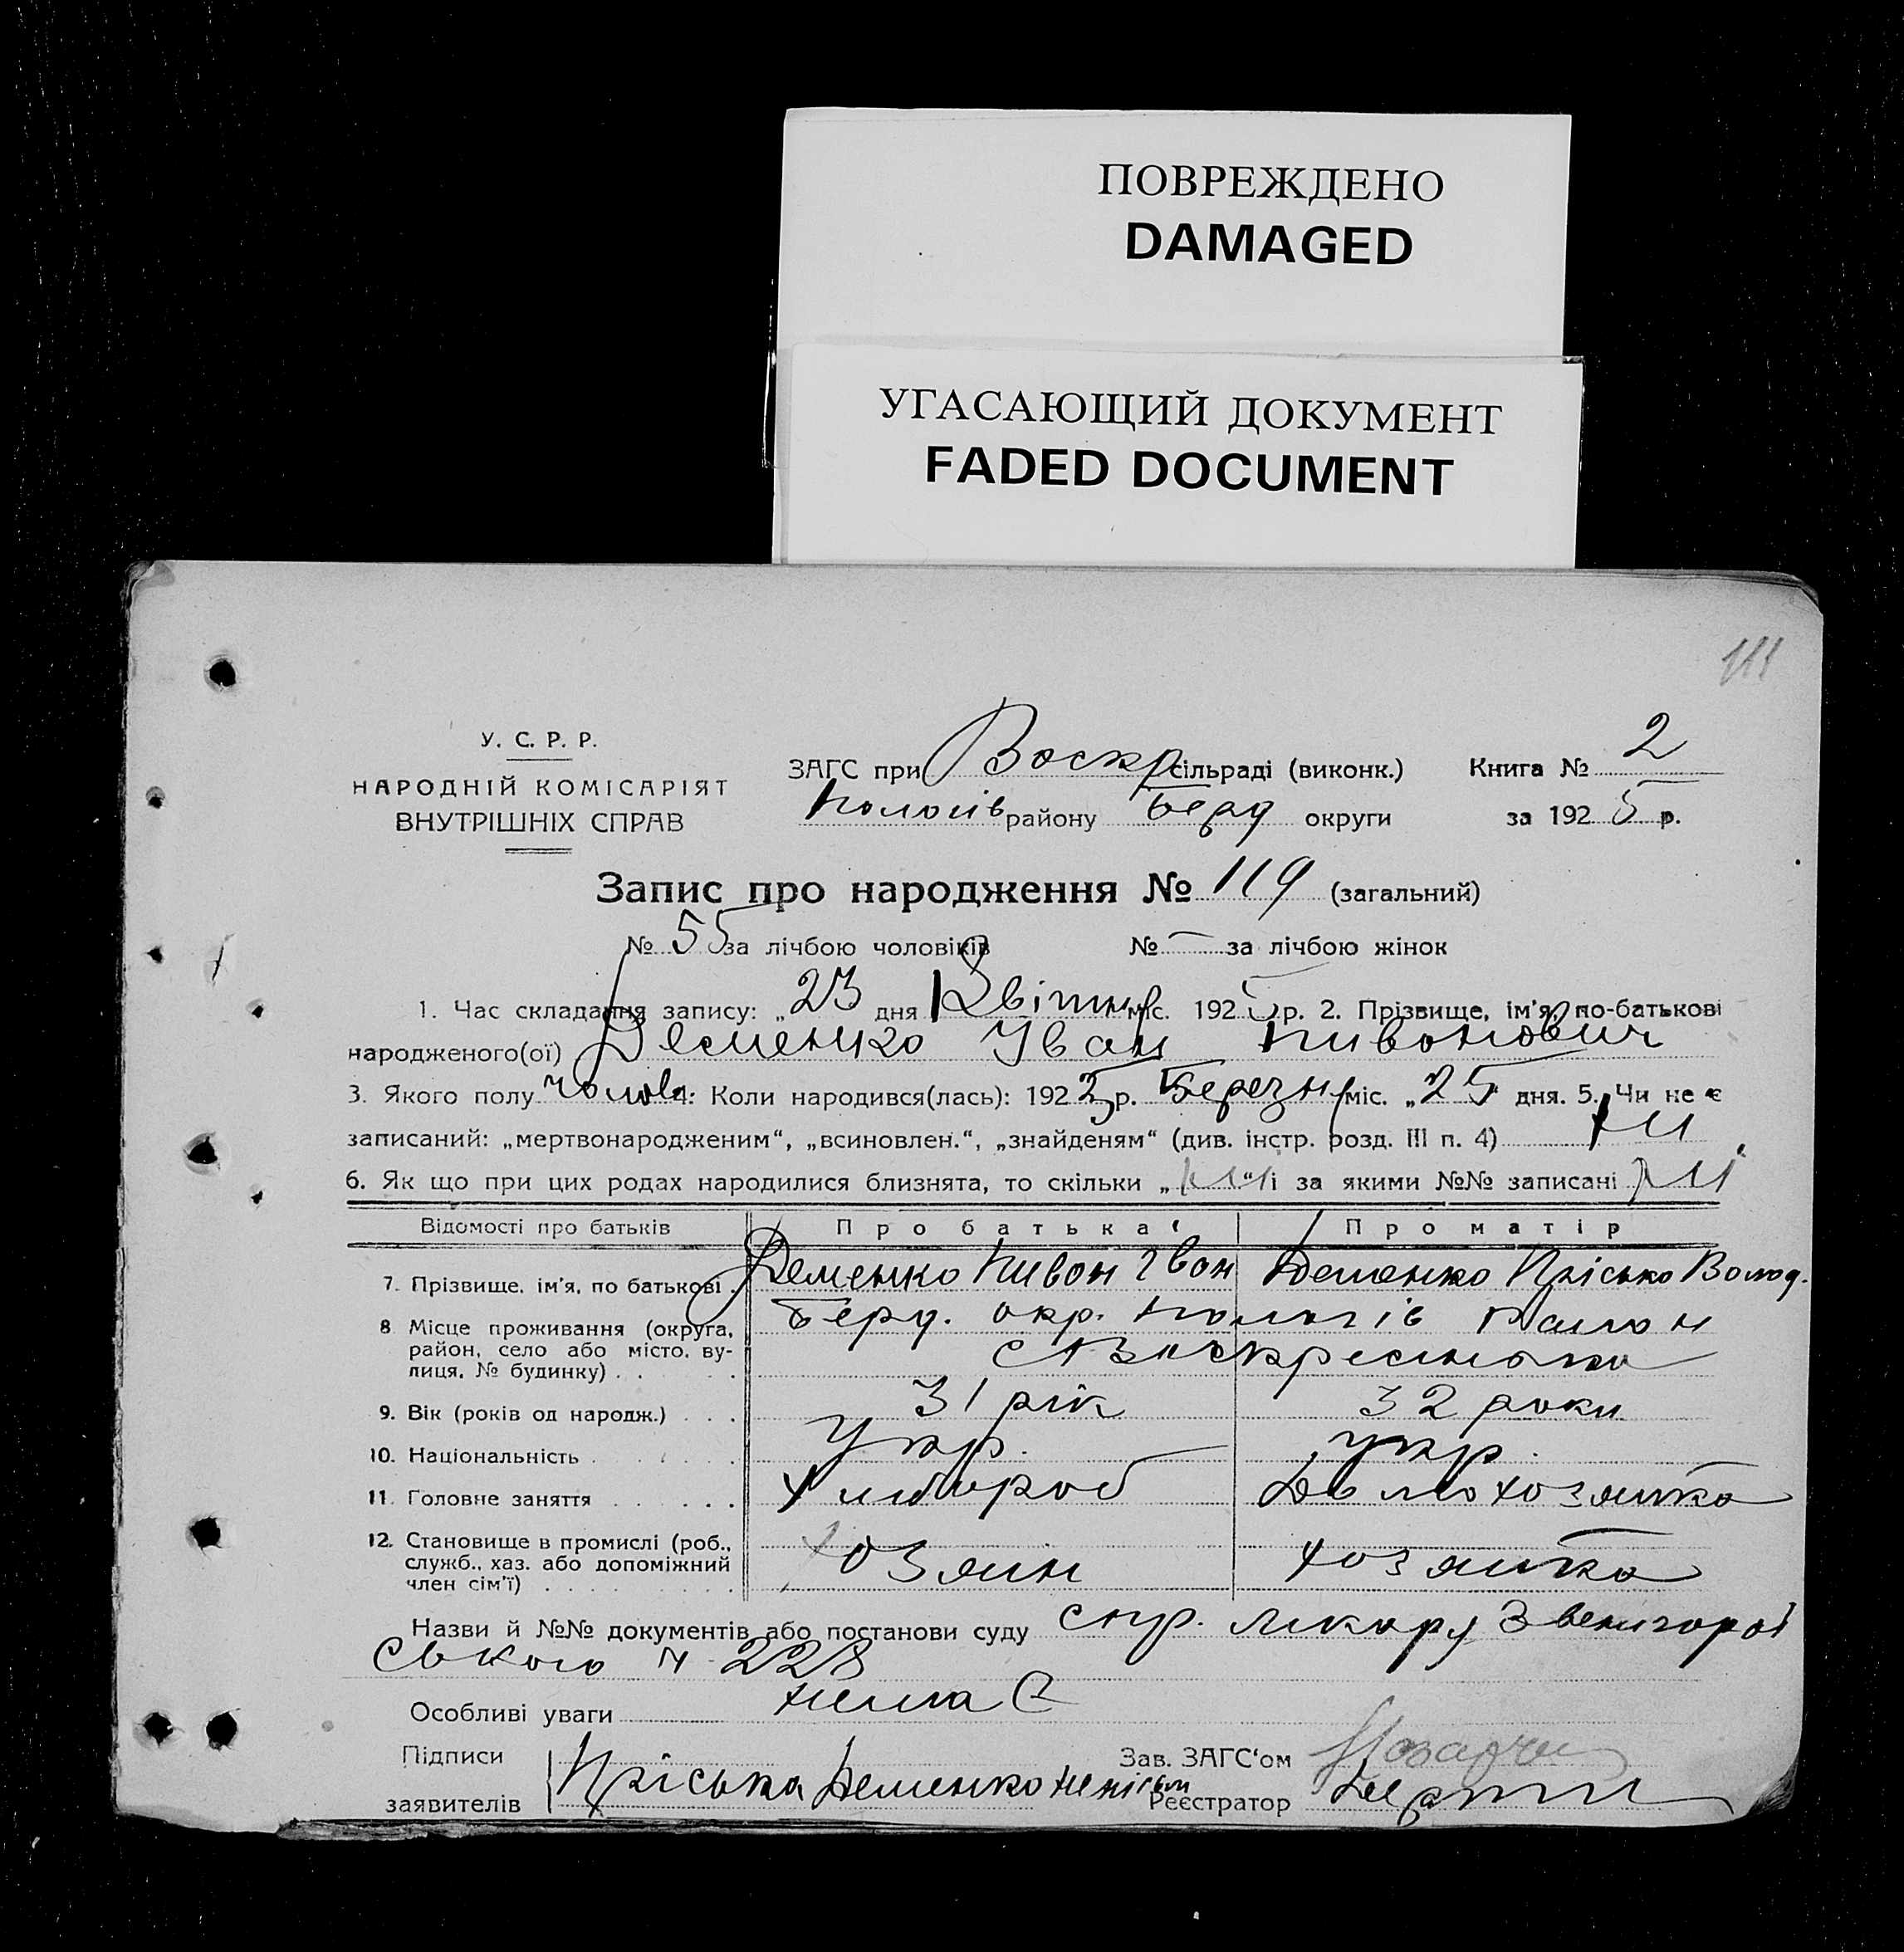 ПОВРЕЖДЕНО
DAMAGED
УГАСАЮЩИЙ ДОКУМЕНТ
FADED DOCUMENT
111
У. С. Р. Р.
НАРОДНІЙ КОМІСАРІЯТ
ВНУТРІШНІХ СПРАВ
ЗАГС при Воскр сільраді (виконк.) Книга № 2
Пологів району Берд округи за 1925 р.
Запис про народження № 119 (загальний)
№ 55 за лічбою чоловіків № — за лічбою жінок
1. Час складання запису: „23 дня Квітня міс. 1925 р. 2. Прізвище, ім'я, по-батькові
народженого(ої) Деменко Іван Пивонович
3. Якого полу чолов. 4. Коли народився(лась): 1925 р. Березня міс. „25" дня. 5. Чи не є
записаний: „мертвонародженим“, „всиновлен.“, „знайденям“ (див. інстр. розд. III п. 4) Ні
6. Як що при цих родах народилися близнята, то скільки „Ні" і за якими №№ записані Ні
Відомості про батьків Про батька Про матір
7. Прізвище, ім'я, по батькові . Деменко Пивон Іван Деменко Пріська Волод.
8 Місце проживання (округа, район, село або місто, вулиця, № будинку) . . . Берд. окр. Пологів Район
с Воскресенька
9. Вік (років од народж.) . . . 31 рік 32 роки
10. Національність . . . . . Укр. укр.
11. Головне заняття . . . . . . Хлибороб Домохозяйка
12. Становище в промислі (роб., служб., хаз. або допоміжний член сім'ї) . . . . . . . . . Хозяин хозяйка
Назви й №№ документів або постанови суду спр. лікару Звенигород
ського N 228
Особливі уваги нема
Підписи заявителів Пріська Деменко неписьм
Зав. ЗАГС‘ом
Реєстратор